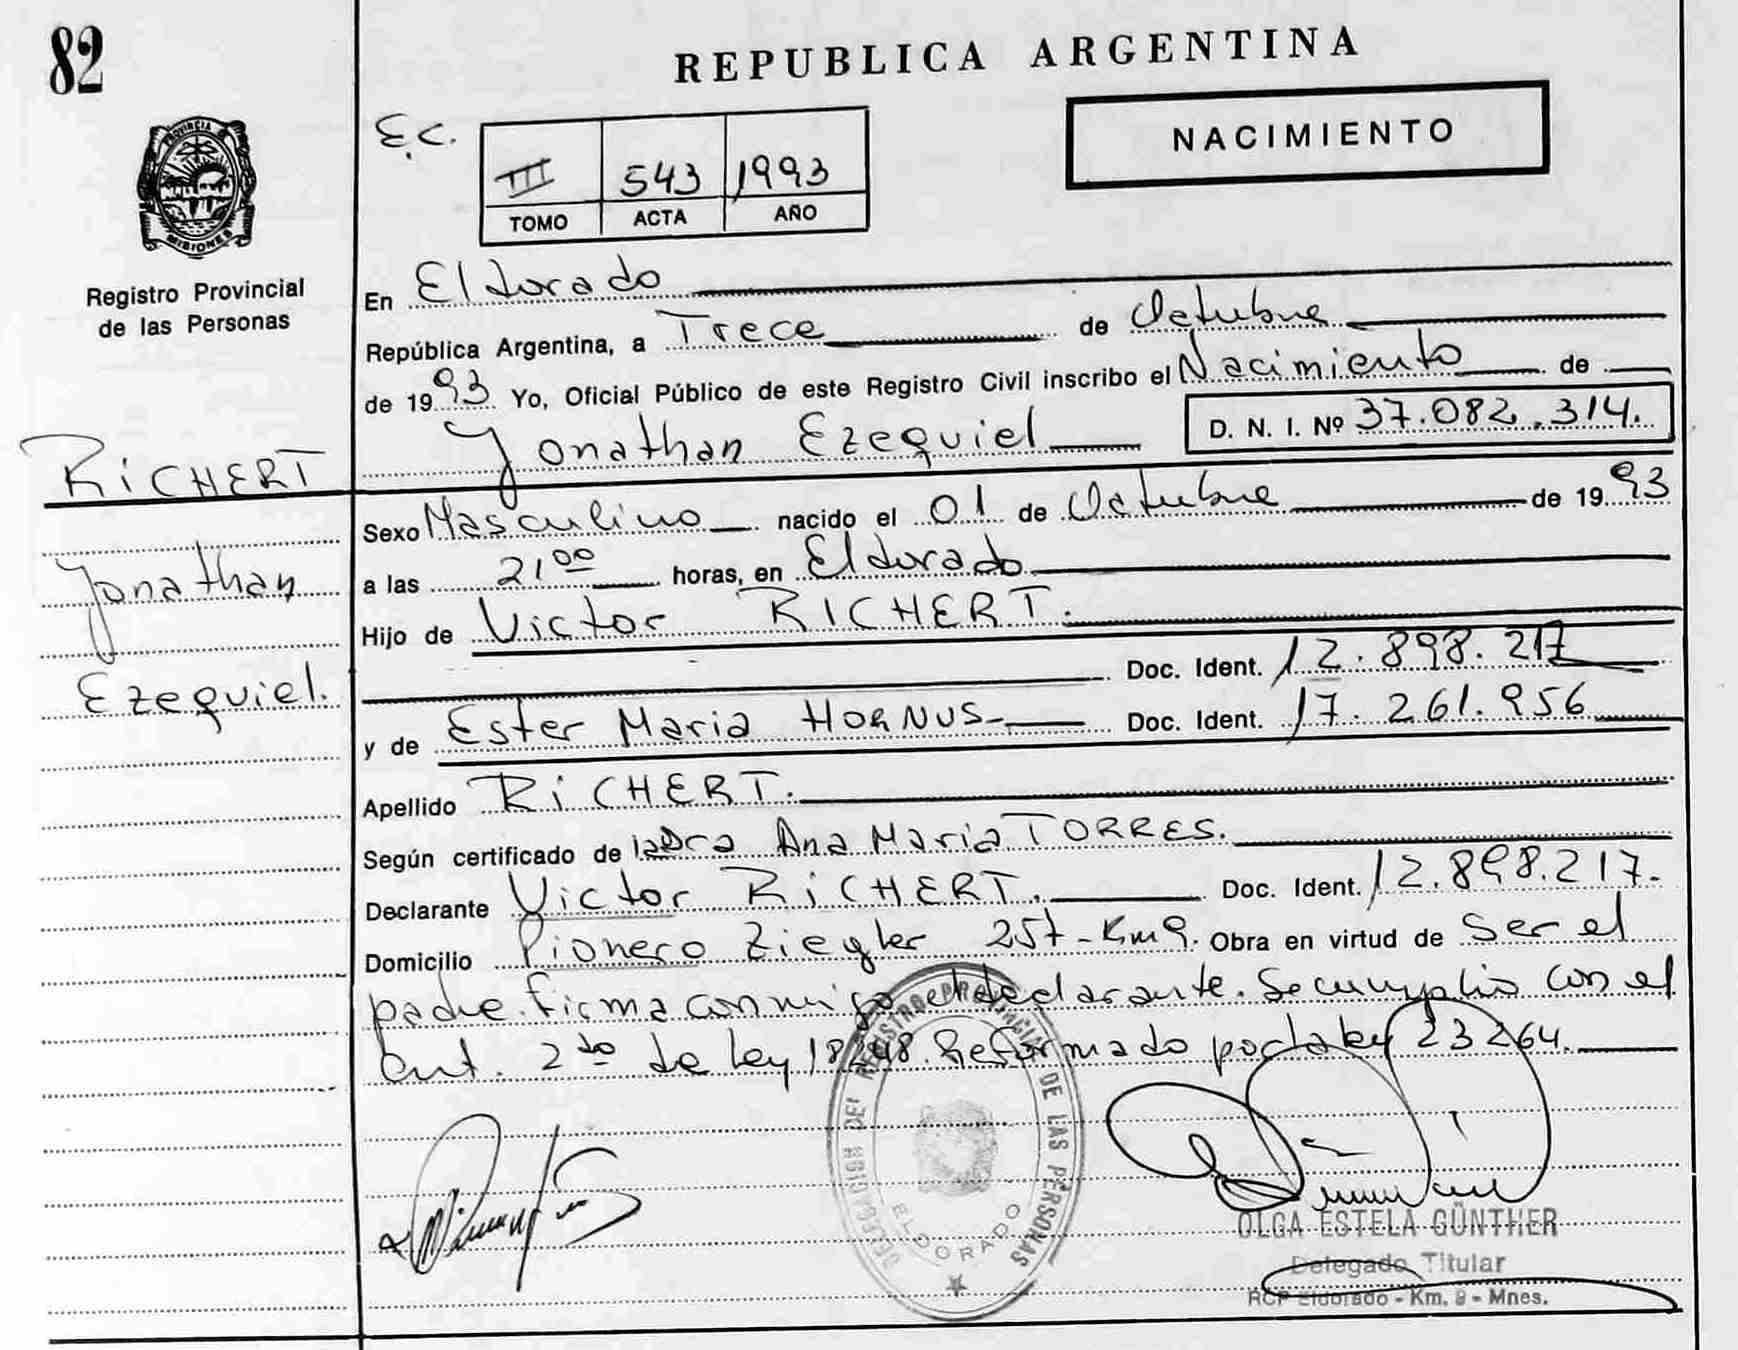 82
REPUBLICA ARGENTINA
PROVINCIA
MISIONES
Registro Provincial
de las Personas
E.C.
III 543 1993
TOMO ACTA AÑO
NACIMIENTO
En Eldorado
República Argentina, a Trece de Octubre
de 1993 Yo, Oficial Público de este Registro Civil inscribo el Nacimiento de
Jonathan Ezequiel D. N. I. Nº 37.082.314.
RiCHERT
Jonathan
Ezequiel.
Sexo Masculino nacido el 01 de Octubre de 1993
a las 21 00 horas, en Eldorado
Hijo de Victor RICHERT.
Doc. Ident. 12.898.217
y de Ester Maria HORNUS- Doc. Ident. 17.261.956
Apellido RiCHERT.
Según certificado de la Dra Ana Maria TORRES.
Declarante Victor RiCHERT. Doc. Ident. 12.898.217.
Domicilio Pionero Ziegler 257-Km9. Obra en virtud de ser el
padre. Firma conmigo el declarante. Se cumplio con el
art. 2do de Ley 18248. Reformado por la ley 23264.
DELEGACION DEL REGISTRO PROVINCIAL DE LAS PERSONAS
ELDORADO
OLGA ESTELA GÜNTHER
Delegado Titular
RCP Eldorado - Km. 9 - Mnes.